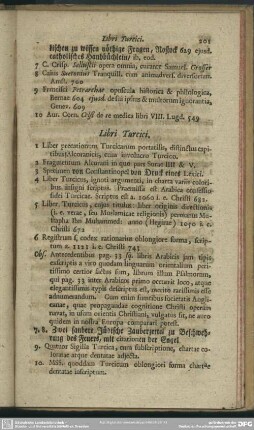 Libri Turcici. 201
lischen zu wissen nöthige Fragen, Rostock 629 ejusd.
catholisches Handbüchlein ib. eod.
7 C. Crisp. Sallustii opera omnia, curante Samuel.
8 Caius Suetonius Tranquill. cum animadvers. diversorum
Amst. 700
9 Francisci Petrarchae opuscula historica & philologica,
Bernae 604 ejusd. de sui ipsius & multorum ignorantia,
Genev. 609
10 Aur. Corn. Celsi de re medica libri VIII. Lugd. 549
Libri Turcici.
1 Liber precationum Turcicarum portatilis, distinctus
Alcoranicis, cum involucro Turcico.
2 Fragmentum Alcorani in quo pars Surae IIII & V.
3 Specimen von Constantinopel von Druck eines Lexici.
4 Liber Turcicus, ignoti argumenti, in charta variis colori-
bus insigni scriptus. Praemissa est Arabica
Turcicae. Scriptus est a. 1060 i. e. Christi 681.
5 Liber Turcicus, cujus titulus: liber religionis directionis
(i. e. verae, seu Moslamicae religionis) peccatoris Mo-
stapha Ibn Muhammedi: anno (Hegirae) 1050 i. e.
Christi 672
6 Registrum s. codex rationum oblongiore forma, scrip-
tum a. 1121 i. e. Christi 743
Obs. Antecedentibus pag. 33 sq. libris Arabicis jam typis
exscriptis a viro quodam linguarum orientalium peri-
tissimo certior factus sum, librum istum Psalmorum,
qui pag. 33 inter Arabicos primo occurrit loco, atque
elegantissimis typis descriptus est, inter rarissimos esse
adnumerandum. Cum enim sumtibus societatis Angli-
canae, quae propagandae cognitioni Christi operam
navat, in usum orientis Christiani, vulgatus sit, ne auro
quidem in nostra Europa comparari potest.
7. 8. Zwei saubere Jüdische Zauberzettul zu Beschweh-
rung des Feuers, mit citationen der Engel
9. Quatuor Sigilla Turcica, cum subscriptione, chartae co-
loratae atque dentatae adjecta.
10. Miss. quoddam Turcicum oblongiori forma chartae
dentatae inscriptum.